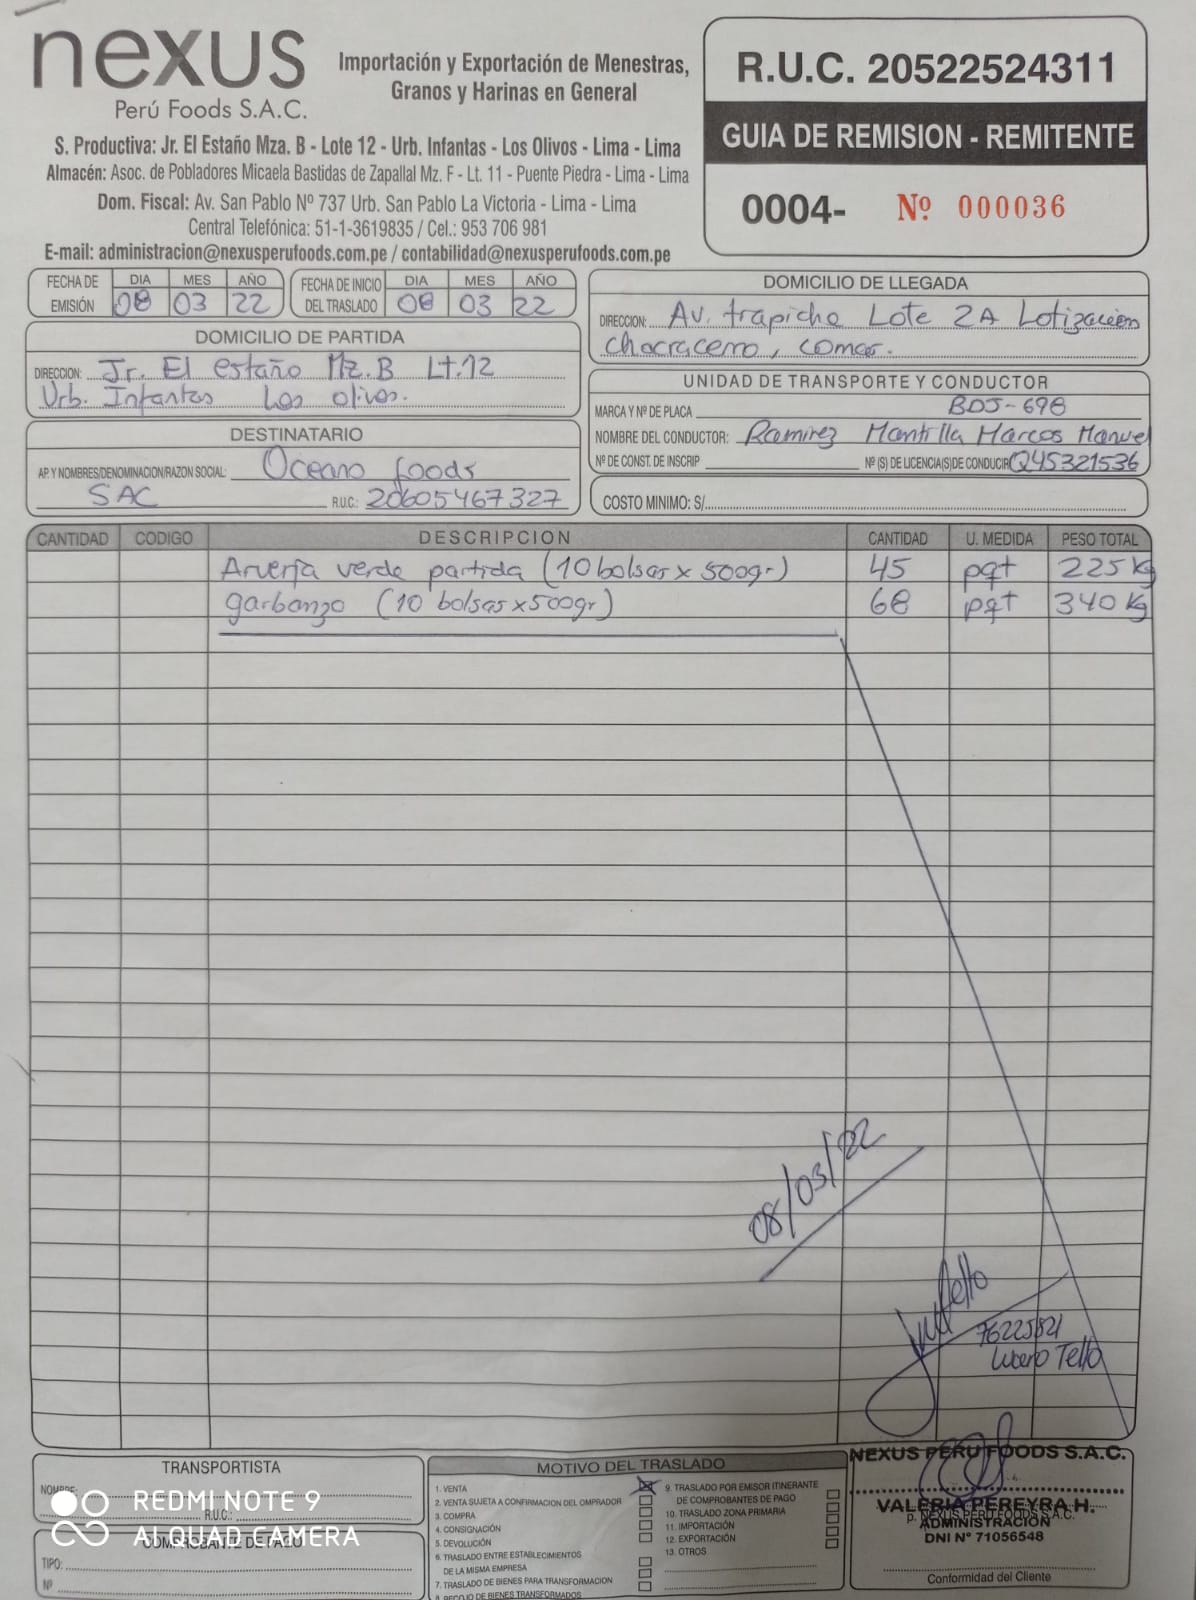 nexus
Perú Foods S.A.C.
Importación y Exportación de Menestras,
Granos y Harinas en General
S. Productiva: Jr. El Estaño Mza. B - Lote 12 - Urb. Infantas - Los Olivos - Lima - Lima
Almacén: Asoc. de Pobladores Micaela Bastidas de Zapallal Mz. F - Lt. 11 - Puente Piedra - Lima - Lima
Dom. Fiscal: Av. San Pablo Nº 737 Urb. San Pablo La Victoria - Lima - Lima
Central Telefónica: 51-1-3619835 / Cel.: 953 706 981
E-mail: administracion@nexusperufoods.com.pe / contabilidad@nexusperufoods.com.pe
R.U.C. 20522524311
GUIA DE REMISION - REMITENTE
0004- Nº 000036
FECHA DE EMISIÓN DIA MES AÑO
08 03 22
FECHA DE INICIO DEL TRASLADO DIA MES AÑO
08 03 22
DOMICILIO DE PARTIDA
DIRECCION: Jr. El estaño Mz.B Lt.12
Urb. Infantas Los olivos.
DOMICILIO DE LLEGADA
DIRECCION: Av. trapiche Lote 2A Lotización
chacracerro, comas.
DESTINATARIO
AP. Y NOMBRES/DENOMINACION/RAZON SOCIAL: Oceano foods
SAC R.U.C.: 20605467327
UNIDAD DE TRANSPORTE Y CONDUCTOR
MARCA Y Nº DE PLACA BDJ-698
NOMBRE DEL CONDUCTOR: Ramirez Mantilla Marcos Manuel
Nº DE CONST. DE INSCRIP Nº (S) DE LICENCIA(S) DE CONDUCIR Q45321536
COSTO MINIMO: S/.
CANTIDAD CODIGO DESCRIPCION CANTIDAD U. MEDIDA PESO TOTAL
Arverja verde partida (10 bolsas x 500gr) 45 pqt 225 kg
garbanzo (10 bolsas x 500gr) 68 pqt 340 Kg
08/03/22
76225821
Lucero Tello
TRANSPORTISTA
NOMBRE:
R.U.C.:
COMPROBANTE DE PAGO
TIPO:
Nº
REDMI NOTE 9
AI QUAD CAMERA
MOTIVO DEL TRASLADO
1. VENTA
2. VENTA SUJETA A CONFIRMACION DEL OMPRADOR
3. COMPRA
4. CONSIGNACIÓN
5. DEVOLUCIÓN
6. TRASLADO ENTRE ESTABLECIMIENTOS
DE LA MISMA EMPRESA
7. TRASLADO DE BIENES PARA TRANSFORMACION
8. RECOJO DE BIENES TRANSFORMADOS
9. TRASLADO POR EMISOR ITINERANTE
DE COMPROBANTES DE PAGO
10. TRASLADO ZONA PRIMARIA
11. IMPORTACIÓN
12. EXPORTACIÓN
13. OTROS
NEXUS PERU FOODS S.A.C.
VALERIA PEREYRA H.
p. NEXUS PERU FOODS S.A.C.
ADMINISTRACIÓN
DNI N° 71056548
Conformidad del Cliente